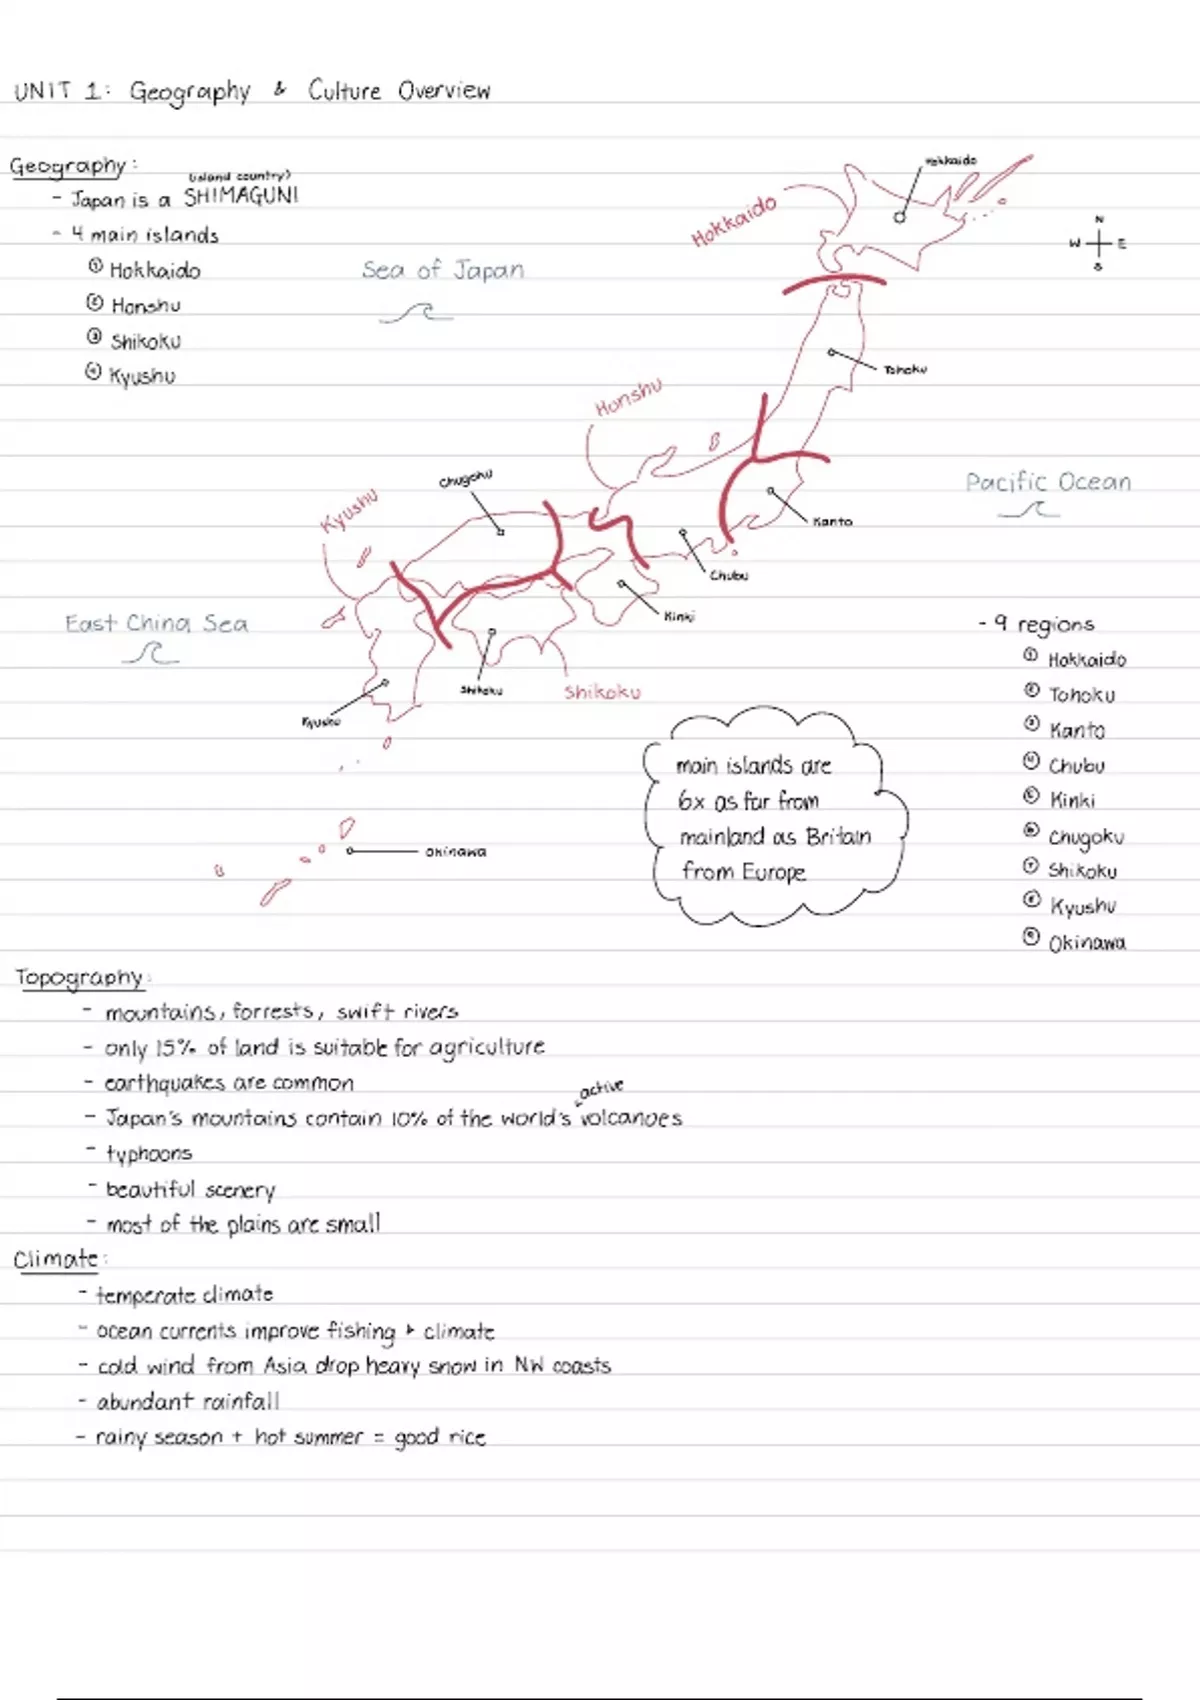 UNIT 1: Geography & Culture Overview
Geography:
(island country)
- Japan is a SHIMAGUNI
- 4 main islands
① Hokkaido
② Honshu
③ Shikoku
④ Kyushu
Sea of Japan
Hokkaido
Hokkaido
N
W E
S
Tohoku
Honshu
Chugoku
Kyushu
Pacific Ocean
Kanto
Chubu
Kinki
East China Sea
Shikoku
Shikoku
Kyushu
Okinawa
main islands are
6x as far from
mainland as Britain
from Europe
- 9 regions
① Hokkaido
② Tohoku
③ Kanto
④ Chubu
⑤ Kinki
⑥ Chugoku
⑦ Shikoku
⑧ Kyushu
⑨ Okinawa
Topography:
- mountains, forrests, swift rivers
- only 15% of land is suitable for agriculture
- earthquakes are common
active
- Japan's mountains contain 10% of the world's volcanoes
- typhoons
- beautiful scenery
- most of the plains are small
Climate:
- temperate climate
- ocean currents improve fishing + climate
- cold wind from Asia drop heavy snow in NW coasts
- abundant rainfall
- rainy season + hot summer = good rice